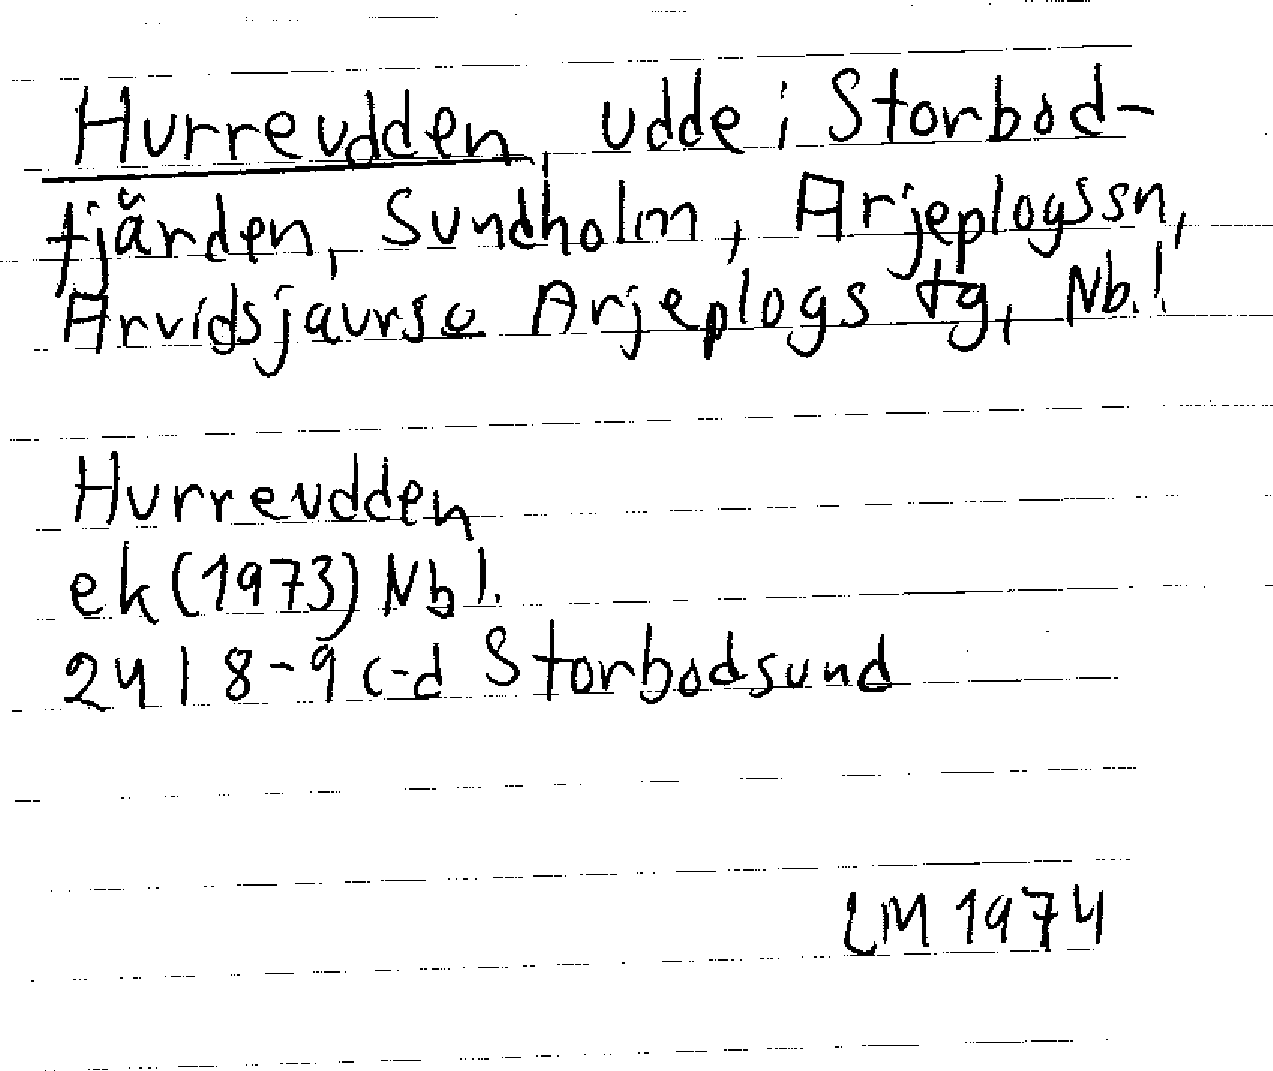 Hurreudden, udde i Storbod-
fjärden, Sundholm, Arjeplogs sn,
Arvidsjaurs o Arjeplogs tg, Nb.l.
Hurreudden
ek (1973) Nb l.
24 I 8-9 c-d Storbodsund
LM 1974